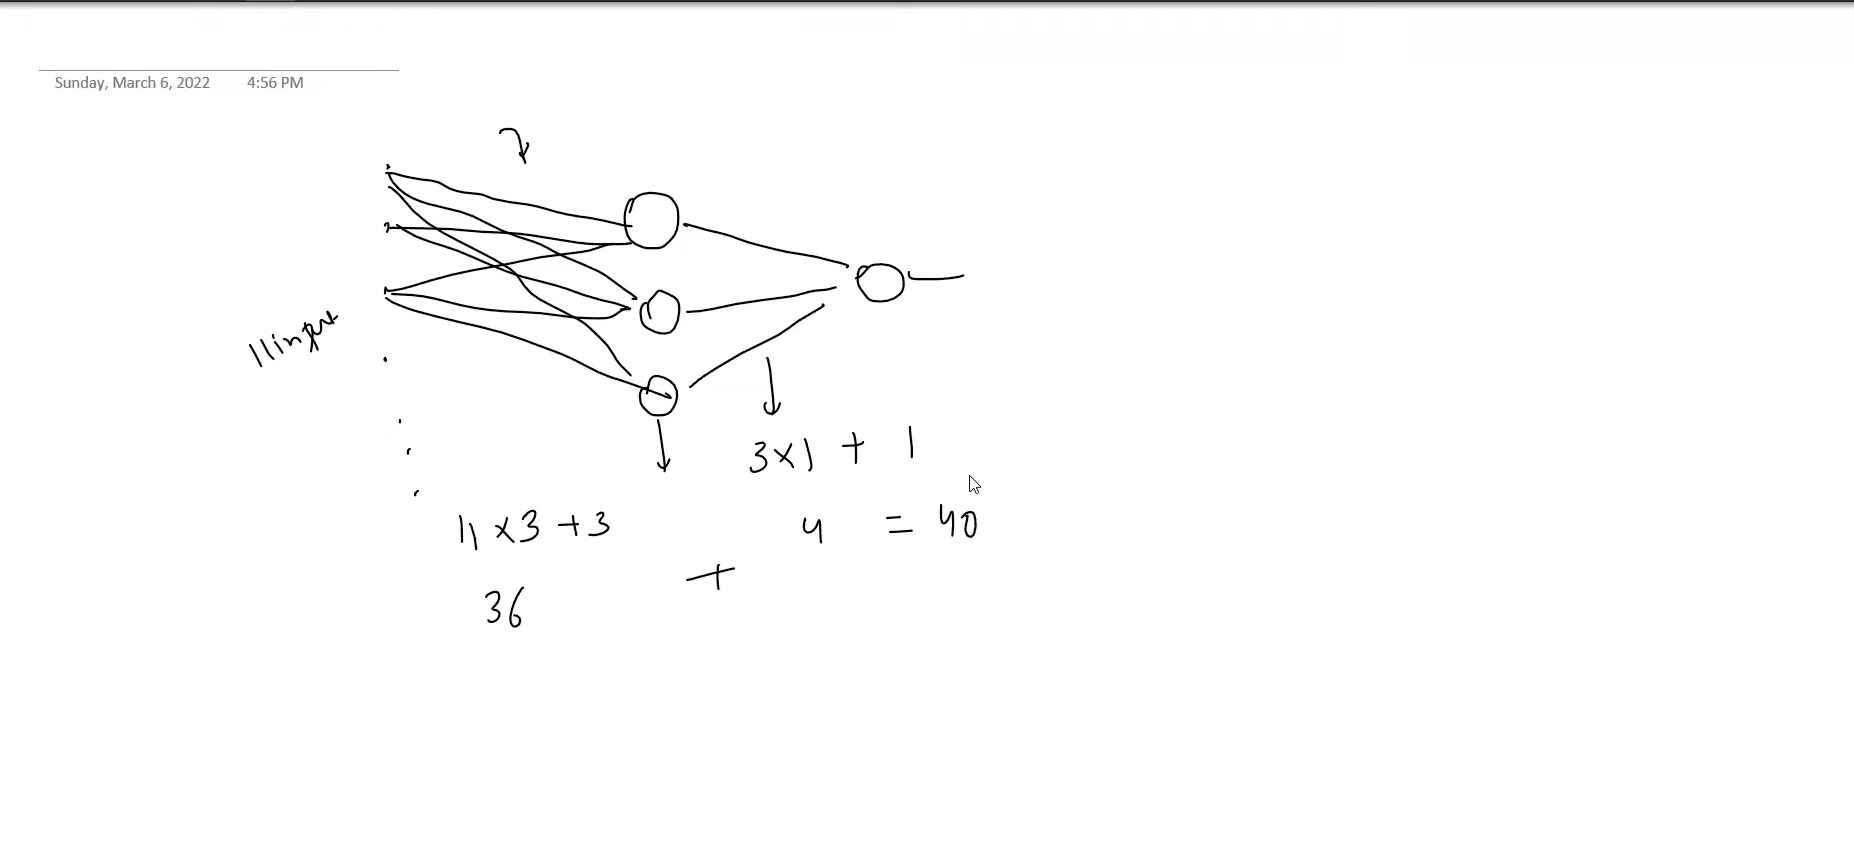 Sunday, March 6, 2022 4:56 PM
11 input
3×1 + 1
11 ×3 +3
4 = 40
+
36